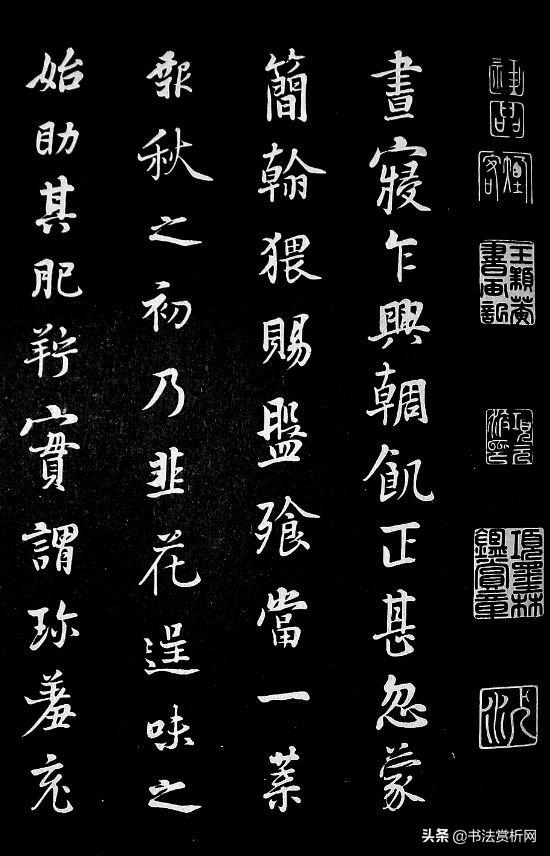 煙客
項元汴印
項墨林鑑賞章
晝寢乍興輖飢正甚忽蒙
簡翰猥賜盤飧當一葉
報秋之初乃韭花逞味之
始助其肥羜實謂珍羞充
头条 @书法赏析网